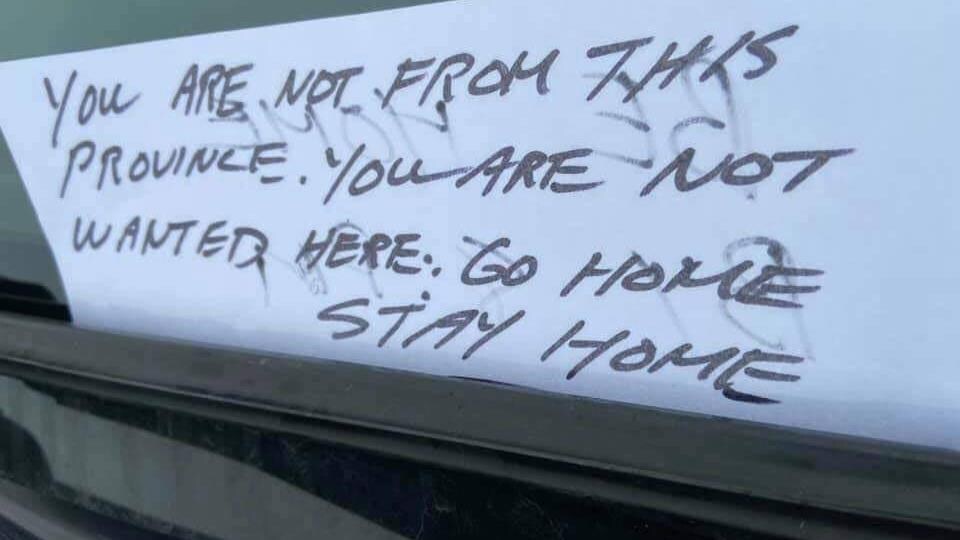 YOU ARE NOT FROM THIS
PROVINCE. YOU ARE NOT
WANTED HERE. GO HOME
STAY HOME